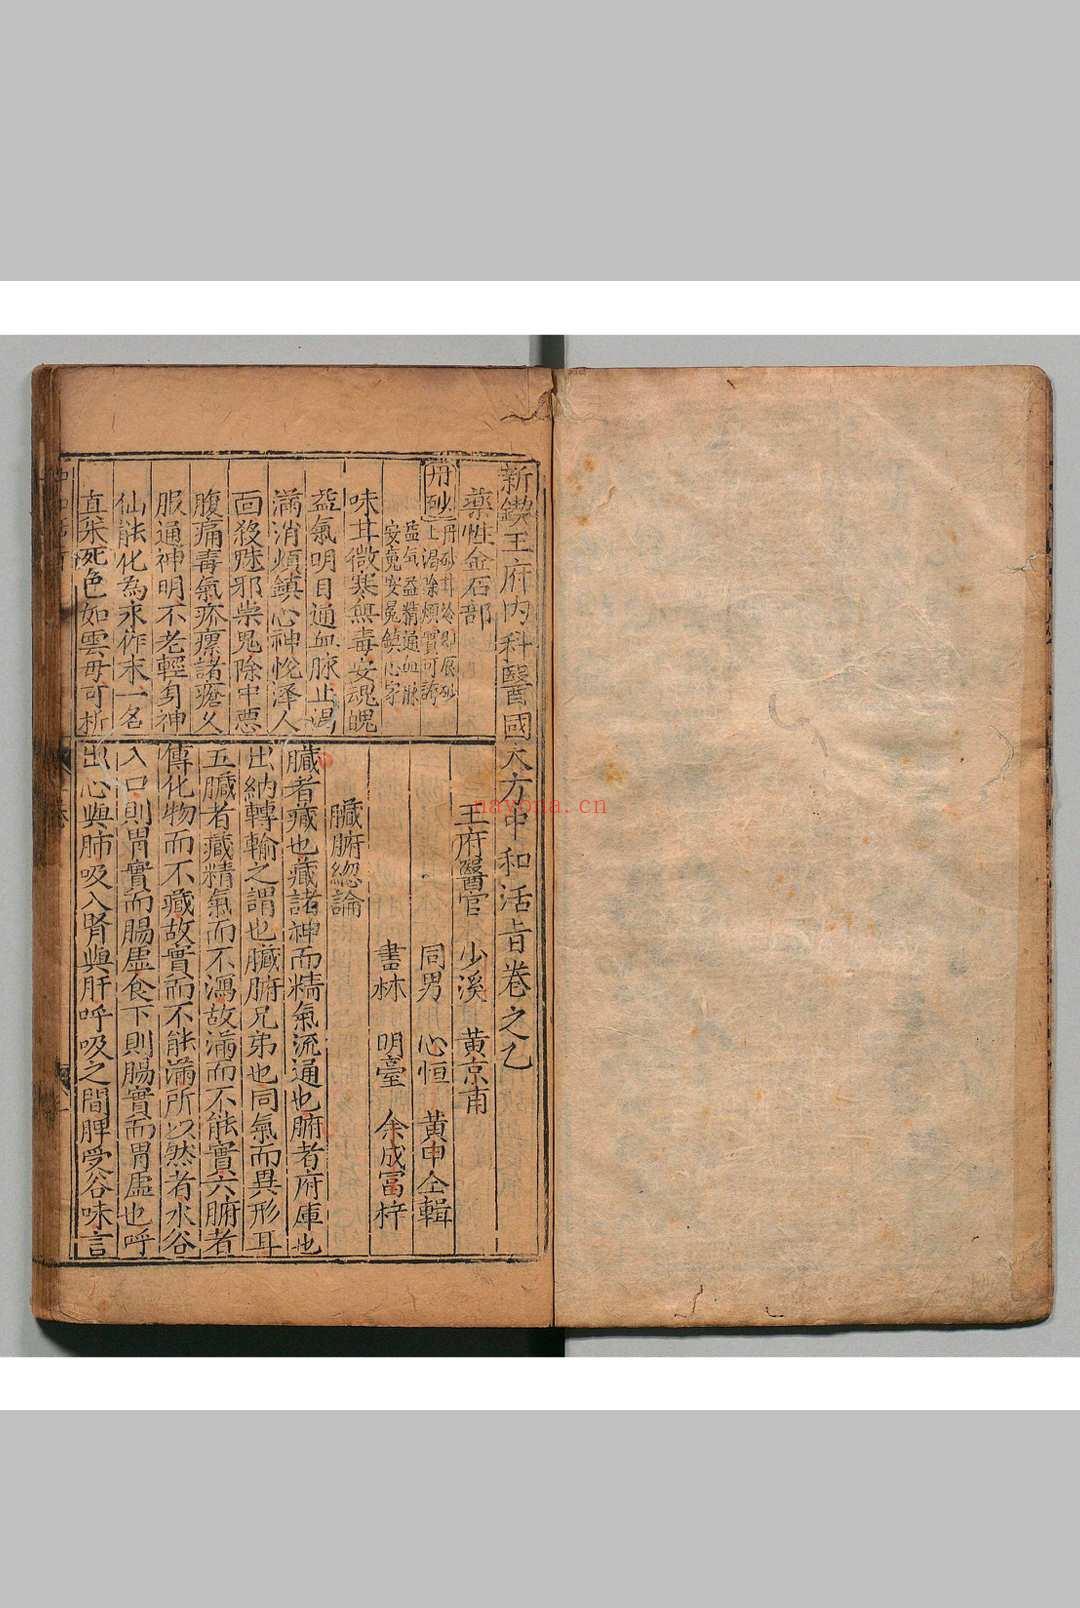 新鍥王府內科醫國大方中和活旨卷之乙
藥性金石部
丹砂
丹砂甘冷即辰砂
止渴除煩實可誇
益气益精通血脉
安䰟安魄鎮心家
味甘微寒無毒安魂魄
益氣明目通血脉止渴
滿消煩鎮心神恱澤人
面殺𭮱邪祟鬼除中惡
腹痛毒氣疥瘰諸瘡久
服通神明不老輕身神
仙能化為汞作末一名
真朱死色如雲母可析
王府醫官 少溪 黃京甫
同男 心恒 黃申仝輯
書林 明臺 余成富梓
臟腑緫論
臟者藏也藏諸神而精氣流通也腑者府庫也
出納轉輸之謂也臟腑兄弟也同氣而異形耳
五臟者藏精氣而不瀉故滿而不能實六腑者
傳化物而不藏故實而不能滿所以然者水谷
入口則胃實而腸虛食下則腸實而胃虛也呼
出心與肺吸入腎與肝呼吸之間脾受谷味言
nayona.cn